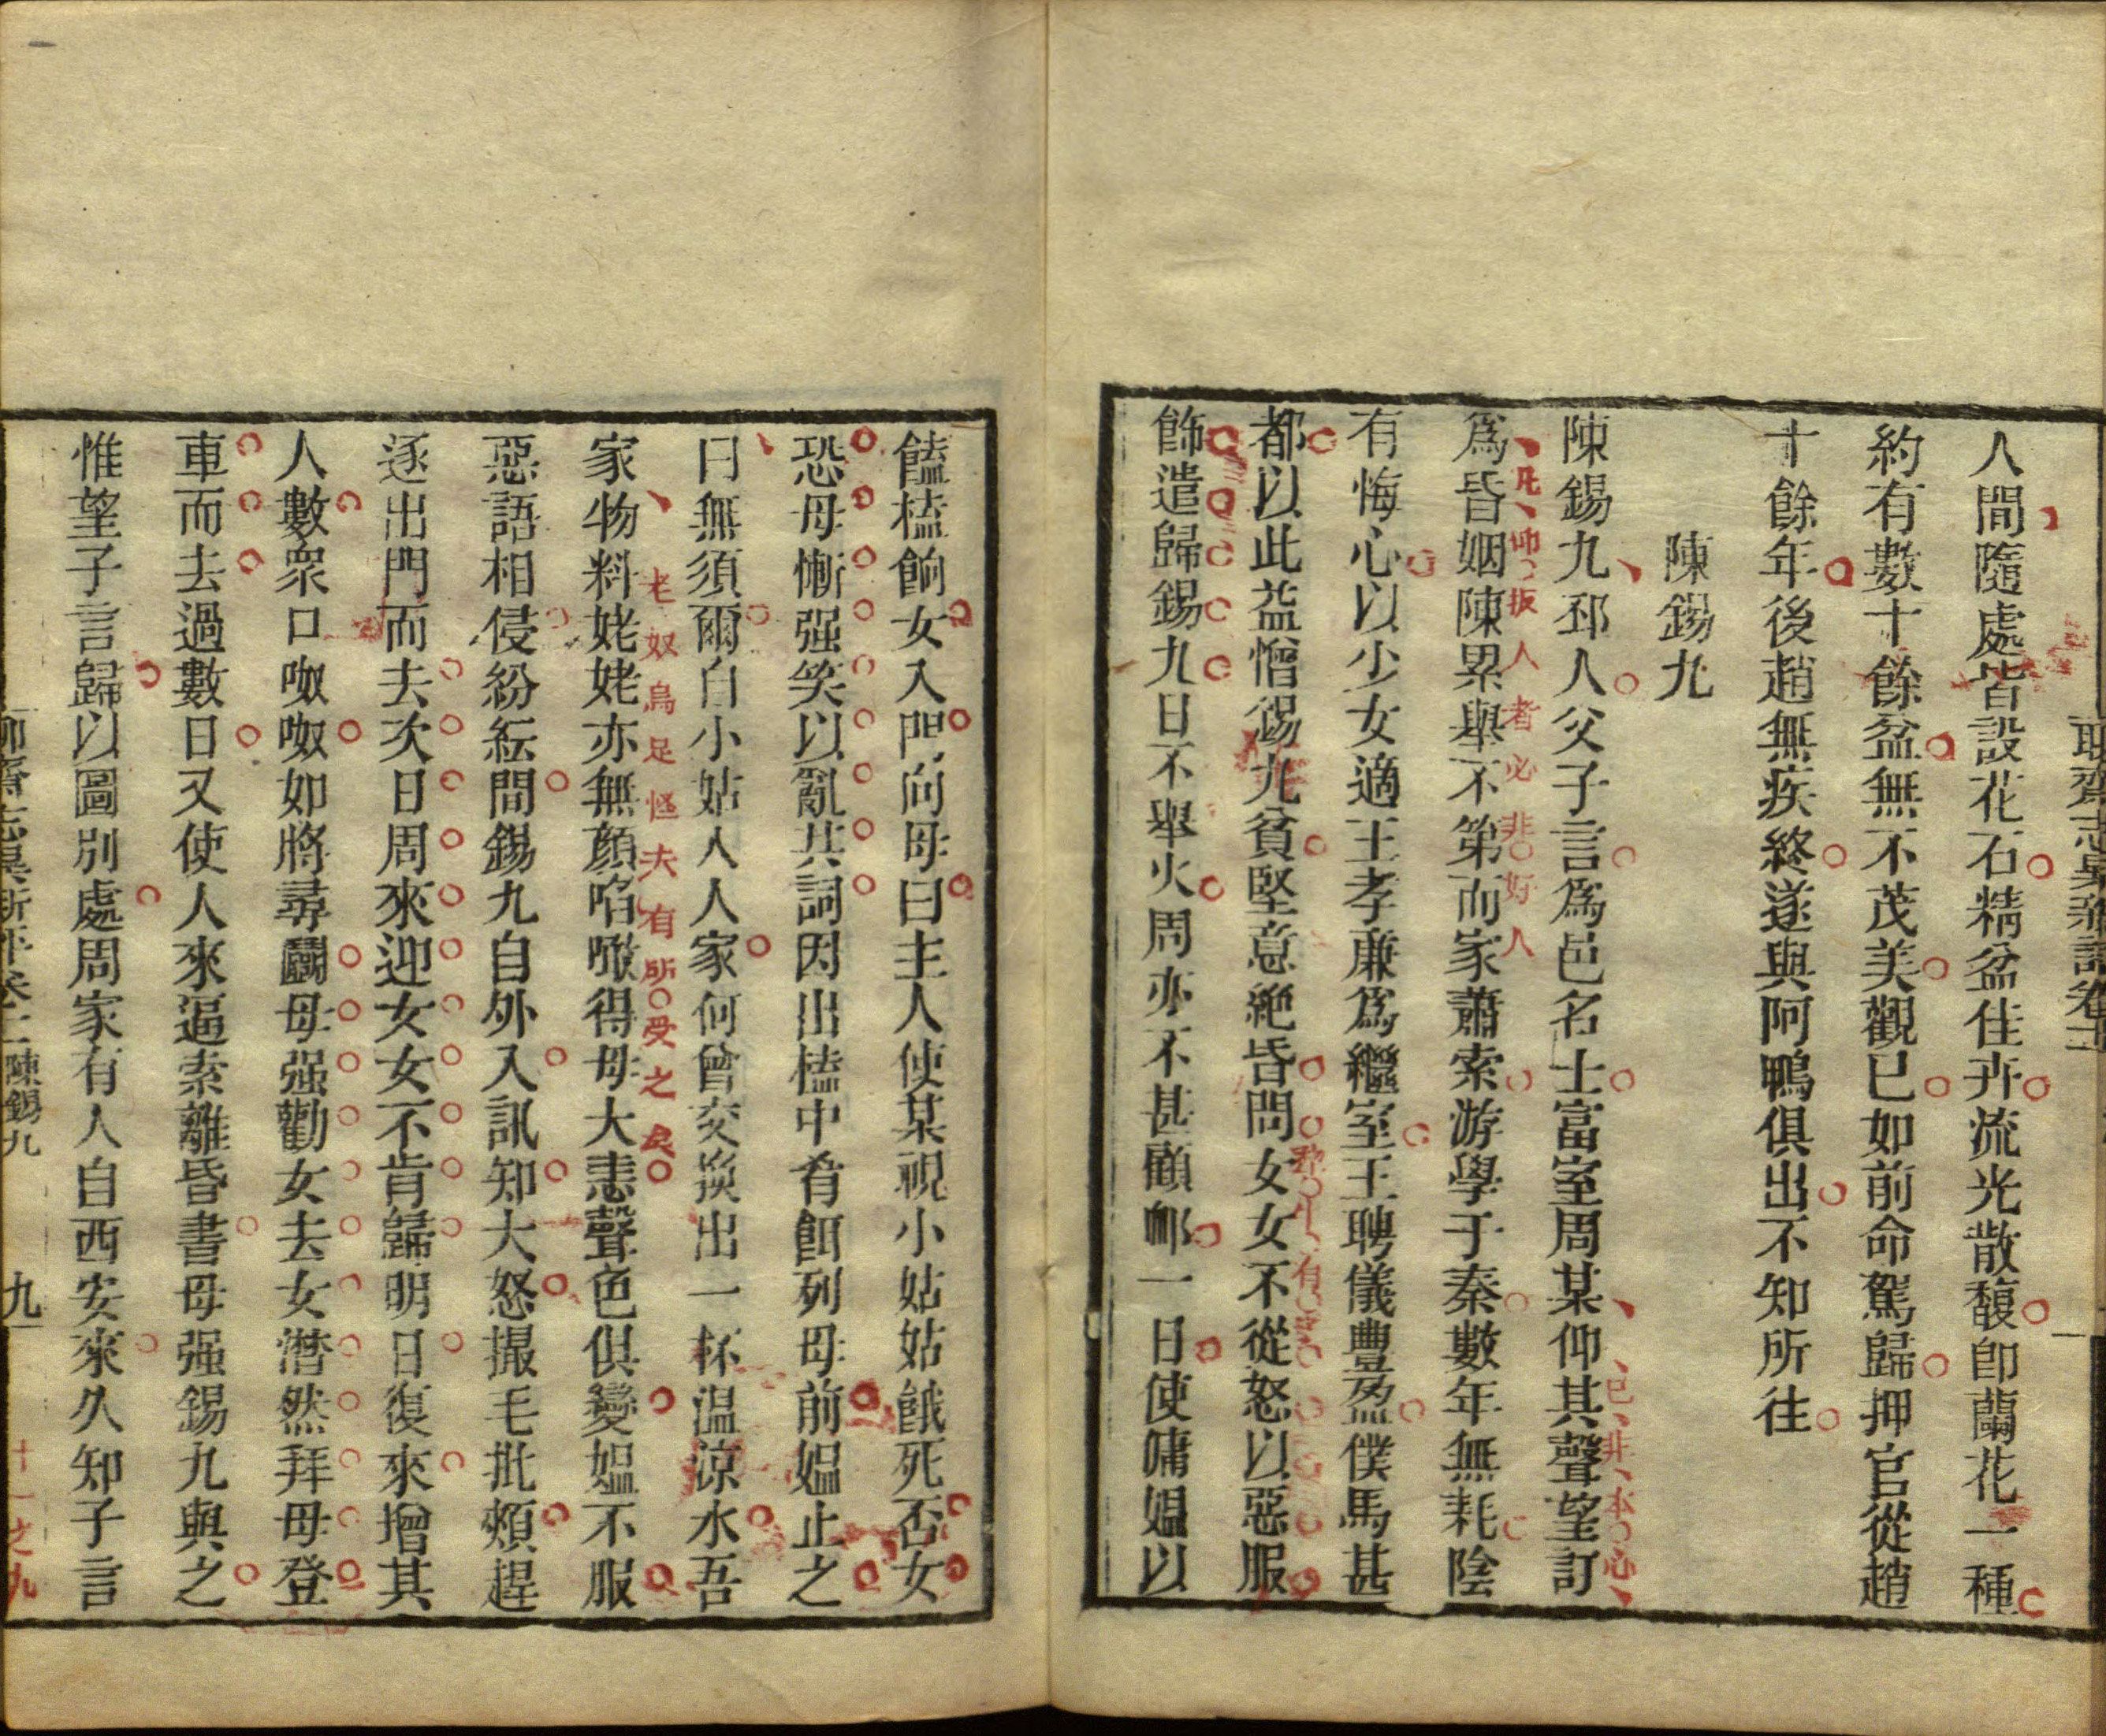 人間隨處皆設花石精盆佳卉流光散馥卽蘭花一種
約有數十餘盆無不茂美觀已如前命駕歸押官從趙
十餘年後趙無疾終遂與阿鴨俱出不知所往
陳錫九
陳錫九邳人父子言爲邑名士富室周某仰其聲望訂
已非本心
爲昏姻陳累舉不第而家蕭索游學于秦數年無耗陰
凡仰扳人者必非好人
有悔心以少女適王孝廉爲繼室王聘儀豊盈僕馬甚
都以此益憎錫九貧堅意絕昏問女女不從怒以惡服
飾遣歸錫九日不舉火周亦不甚顧卹一日使傭媼以
饁榼餉女入門向母曰主人使某視小姑姑餓死否女
恐母慚强笑以亂其詞因出榼中肴餌列母前媼止之
曰無須爾自小姑人人家何曾交換出一杯温涼水吾
家物料姥姥亦無顏啗噉得母大恚聲色俱變媼不服
老奴烏足怪夫有所受之矣
惡語相侵紛紜間錫九自外入訊知大怒撮毛批頰趕
逐出門而去次日周來迎女女不肯歸明日復來增其
人數衆口呶呶如將尋鬭母强勸女去女潸然拜母登
車而去過數日又使人來逼索離昏書母强錫九與之
惟望子言歸以圖別處周家有人自西安來久知子言
陳錫九
九
十一之九